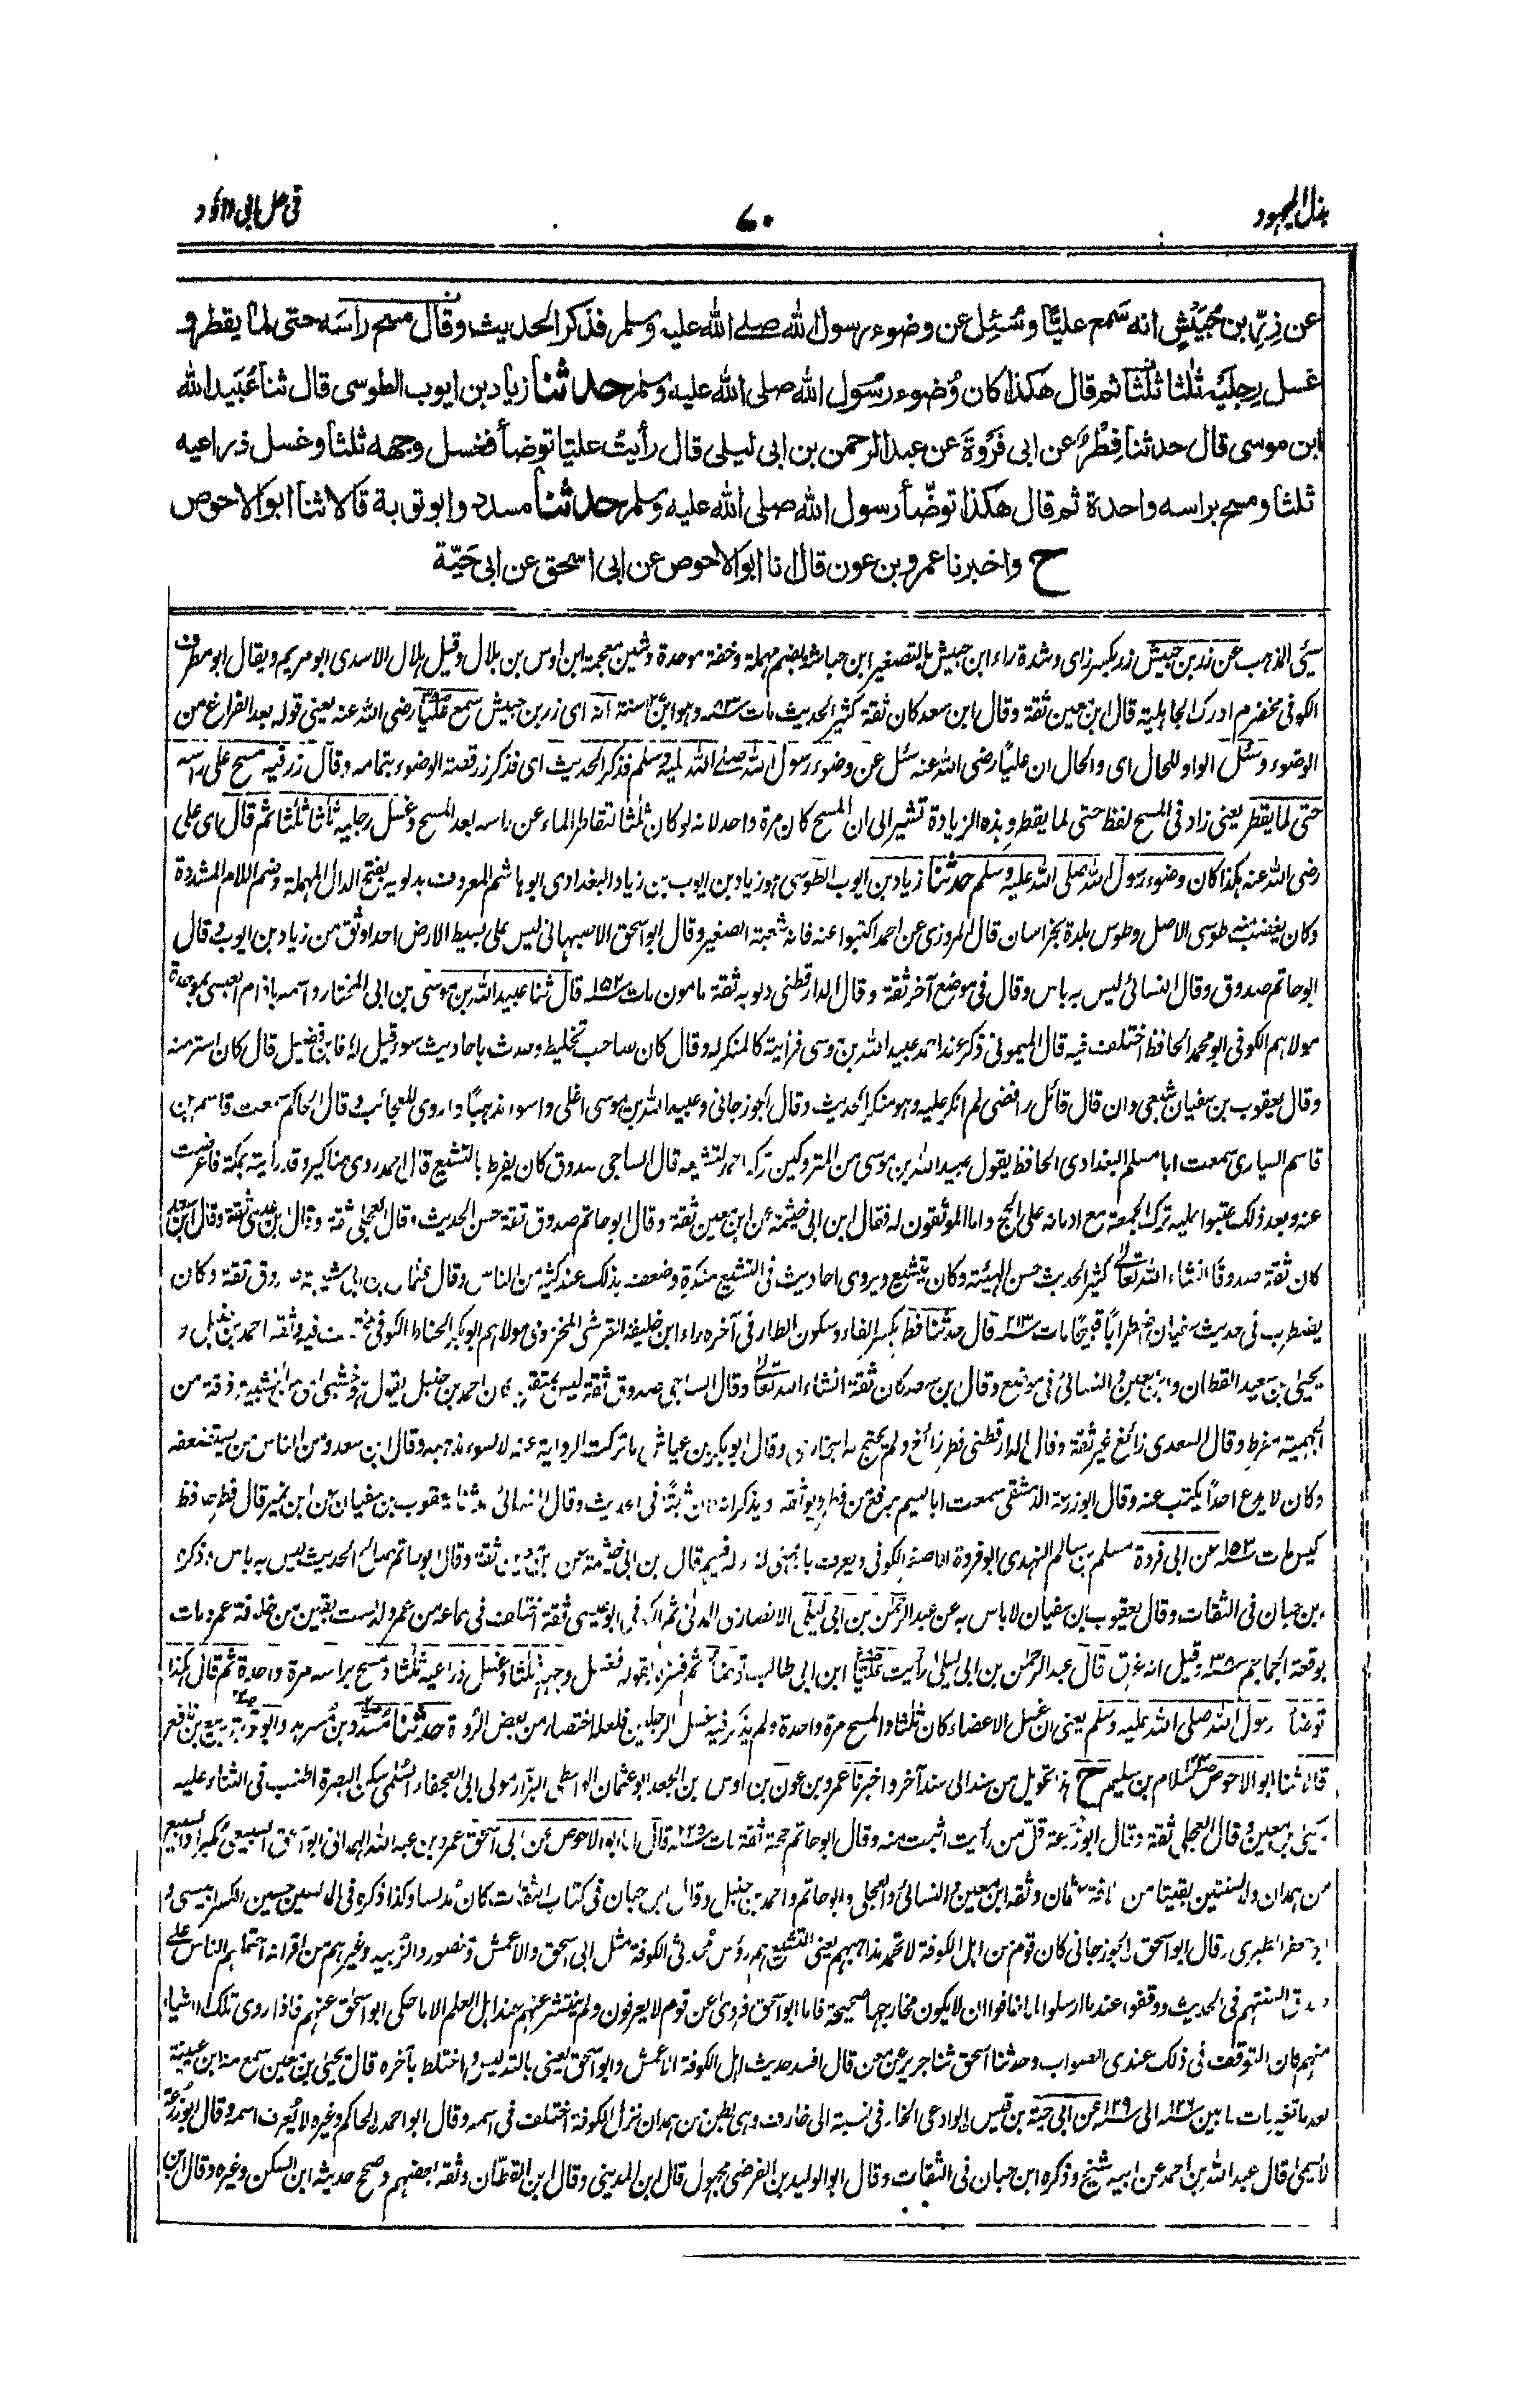 بذل المجهود
٧٠
في حل ابي داؤد
عن زِرِّ بن حُبَيْشٍ انه سَمع عليًّا وسُئِل عن وضوء رسول الله صلى الله عليه وسلم فذكر الحديث وقال مسح راسَه حتى لمّا يقطر و
غسل رِجليه ثلٰثا ثلٰثا ثم قال هكذا كان وُضوء رسُول الله صلى الله عليه وسلم حدثنا زياد بن ايوب الطوسى قال ثنا عُبَيد الله
ابن موسى قال حدثنا فِطْرٌ عن ابى فَرْوَةَ عن عبد الرحمن بن ابى ليلى قال رأيتُ عليّا توضأ فغسل وجهه ثلثا وغسل ذراعيه
ثلثا ومسح براسه واحدة ثم قال هكذا توضّأ رسول الله صلى الله عليه وسلم حدثنا مسدد وابو توبة قالا ثنا ابو الاحوص
ح واخبرنا عمرو بن عون قال نا ابو الاحوص عن ابى اسحق عن ابى حَيّة
سيئ المذهب عن زر بن حبيش زر بكسر زاى وشدة راء ابن حبيش بالتصغير ابن حباشة بضم مهملة وخفة موحدة وشين معجمة ابن اوس بن بلال وقيل هلال الاسدى ابو مريم ويقال ابو مطرف
الكوفى مخضرم ادرك الجاهلية قال ابن معين ثقة وقال ابن سعد كان ثقة كثير الحديث مات سنة ٨٣ وهو ابن سنة انه اى زر بن حبيش سمع عليًّا رضى الله عنه يعنى قوله بعد الفراغ من
الوضوء وسئل الواو للحال اى والحال ان عليًا رضى الله عنه سئل عن وضوء رسول الله صلى الله عليه وسلم فذكر الحديث اى فذكر زر قصة الوضوء بتمامه وقال زر فيه مسح على راسه
حتى لما يقطر يعنى زاد فى المسح لفظ حتى لما يقطر وهذه الزيادة تشير الى ان المسح كان مرة واحد لانه لو كان ثلثا لتقاطر الماء عن راسه بعد المسح وغسل رجليه ثلثا ثلثا ثم قال اى على
رضى الله عنه هكذا كان وضوء رسول الله صلى الله عليه وسلم حدثنا زياد بن ايوب الطوسى هو زياد بن ايوب بن زياد البغدادى ابو هاشم المعروف بدلويه بفتح الدال المهملة وضم اللام المشددة
وكان يغضب منه طوسى الاصل وطوس بلدة بخراسان قال المروزى عن احمد اكتبوا عنه فانه شعبة الصغير وقال ابو اسحق الاصبهانى ليس على بسيط الارض احد اوثق من زياد بن ايوب وقال
ابو حاتم صدوق وقال النسائى ليس به باس وقال فى موضع آخر ثقة وقال الدارقطنى دلويه ثقة مامون مات سنة ١٥٢ قال ثنا عبيد الله بن موسى بن ابى المختار واسمه باذام العبسى بموحدة
مولاهم الكوفى ابو محمد الحافظ اختلف فيه قال الميمونى ذكر عند احمد عبيد الله بن موسى فرأيته كالمنكر له وقال كان صاحب تخليط وحدث باحاديث سوء قيل له فابن فضيل قال كان استر منه
وقال يعقوب بن سفيان شيعى وان قال قائل رافضى لم انكر عليه وهو منكر الحديث وقال الجوزجانى وعبيد الله بن موسى اغلى واسوء مذهبًا واروى للعجائب وقال الحاكم سمعت قاسم بن
قاسم السيارى سمعت ابا مسلم البغدادى الحافظ يقول عبيد الله بن موسى من المتروكين تركه احمد لتشيعه قال الساجى صدوق كان يفرط بالتشيع قال احمد روى مناكير وقد رأيته بمكة فاعرضت
عنه وبعد ذلك عتبوا عليه ترك الجمعة مع ادمانه على الحج واما الموثقون له فقال ابن ابى خيثمة عن ابن معين ثقة وقال ابو حاتم صدوق ثقة حسن الحديث وقال العجلى ثقة وقال ابن عدى ثقة وقال ابن سعد
كان ثقة صدوقا انشاء الله تعالى كثير الحديث حسن الهيئة وكان يتشيع ويروى احاديث فى التشيع منكرة وضعف بذلك عند كثير من الناس وقال عثمان بن ابى شيبة صدوق ثقة وكان
يضطرب فى حديث سفيان اضطرابًا قبيحًا مات سنة ٢١٣ قال حدثنا فطر بكسر الفاء وسكون الطاء فى آخره راء ابن خليفة القرشى المخزومى مولاهم ابو بكر الحناط الكوفى مختلف فيه وثقه احمد بن حنبل و
يحيىٰ بن سعيد القطان وابن معين والنسائى فى موضع وقال ابن سعد كان ثقة انشاء الله تعالى وقال الساجى صدوق ثقة ليس بمتقن كان احمد بن حنبل يقول هو خشبى اى من الخشبية فرقة من
الجهمية مفرط وقال السعدى زائغ غير ثقة وقال الدارقطنى فطر زائغ ولم يحتج به البخارى وقال ابو بكر بن عياش ما تركت الرواية عنه الا لسوء مذهبه وقال ابن سعد ومن الناس من يستضعفه
وكان لا يدع احدًا يكتب عنه وقال ابو زرعة الدمشقى سمعت ابا نعيم يرفع من فطر ويوثقه ويذكر انه كان ثبتًا فى الحديث وقال النسائى حدثنا يعقوب بن سفيان عن ابن نمير قال فطر حافظ
كيس مات سنة ١٥٣ عن ابى فروة مسلم بن سالم النهدى ابو فروة الاصغر الكوفى ويعرف بالجهنى لنزوله فيهم قال ابن ابى خيثمة عن ابن معين ثقة وقال ابو حاتم صالح الحديث ليس به باس وذكره
ابن حبان فى الثقات وقال يعقوب بن سفيان لا باس به عن عبد الرحمٰن بن ابى ليلى الانصارى المدنى ثم الكوفى ابو عيسى ثقة اختلف فى سماعه من عمر ولد لست بقين من خلافة عمر ومات
بوقعة الجماجم سنة ٨٣ وقيل انه غرق قال عبد الرحمٰن بن ابى ليلىٰ رأيت عليًّا ابن ابى طالب توضأ ثم فسره بقوله فغسل وجهه ثلثا وغسل ذراعيه ثلثا ومسح براسه مرة واحدة ثم قال هكذا
توضأ رسول الله صلى الله عليه وسلم يعنى ان غسل الاعضاء كان ثلثا والمسح مرة واحدة ولم يذكر فيه غسل الرجلين فلعله اختصار من بعض الرواة حدثنا مسدد بن مسرهد وابو توبة ربيع بن نافع
قالا ثنا ابو الاحوص سلام بن سليم ح هذا تحويل من سند الى سند آخر واخبرنا عمرو بن عون بن اوس بن الجعد ابو عثمان الواسطى البزار مولى ابى العجفاء السلمى سكن البصرة اطنب فى الثناء عليه
يحيىٰ بن معين وقال العجلى ثقة وقال ابو زرعة قلّ من رأيت اثبت منه وقال ابو حاتم حجة ثقة مات سنة قال انا ابو الاحوص عن ابى اسحق عمرو بن عبد الله الهمدانى ابو اسحق السبيعى
من همدان ولد لسنتين بقيتا من خلافة عثمان وثقه ابن معين والنسائى والعجلى وابو حاتم واحمد بن حنبل وقال ابن حبان فى كتاب الثقات كان مدلسا وكذا ذكره فى المدلسين حسين الكرابيسى و
ابو جعفر الطبرى وقال ابو اسحق الجوزجانى كان قوم من اهل الكوفة لا تحمد مذاهبهم يعنى التشيع هم رؤس محدثى الكوفة مثل ابى اسحق والاعمش ومنصور والزبيد وغيرهم من اقرانه احتملهم الناس على
صدق السنتهم فى الحديث ووقفوا عند ما ارسلوا لما خافوا ان لا يكون مخارجها صحيحة فاما ابو اسحق فروى عن قوم لا يعرفون ولم ينتشر عنهم عند اهل العلم الا ما حكى ابو اسحق عنهم فاذا روى تلك الاشياء
عنهم كان التوقف فى ذلك عندى الصواب وحدثنا اسحق ثنا جرير عن معن قال افسد حديث اهل الكوفة الاعمش وابو اسحق يعنى بالتدليس واختلط بآخره قال يحيىٰ بن معين سمع منه ابن عيينة
بعد ما تغير مات ما بين سنة ١٢٦ الى سنة ١٢٩ عن ابى حية بن قيس الوادعى الخارفى نسبة الى خارف وهى بطن من همدان نزل الكوفة اختلف فى اسمه وقال ابو احمد الحاكم وغيره لا يعرف اسمه وقال ابو زرعة
لا يسمىٰ قال عبد الله بن احمد عن ابيه شيخ وذكره ابن حبان فى الثقات وقال ابو الوليد بن الفرضى مجهول قال ابن المدينى وقال ابن القطان وثقه بعضهم وصحح حديثه ابن السكن وغيره وقال ابن